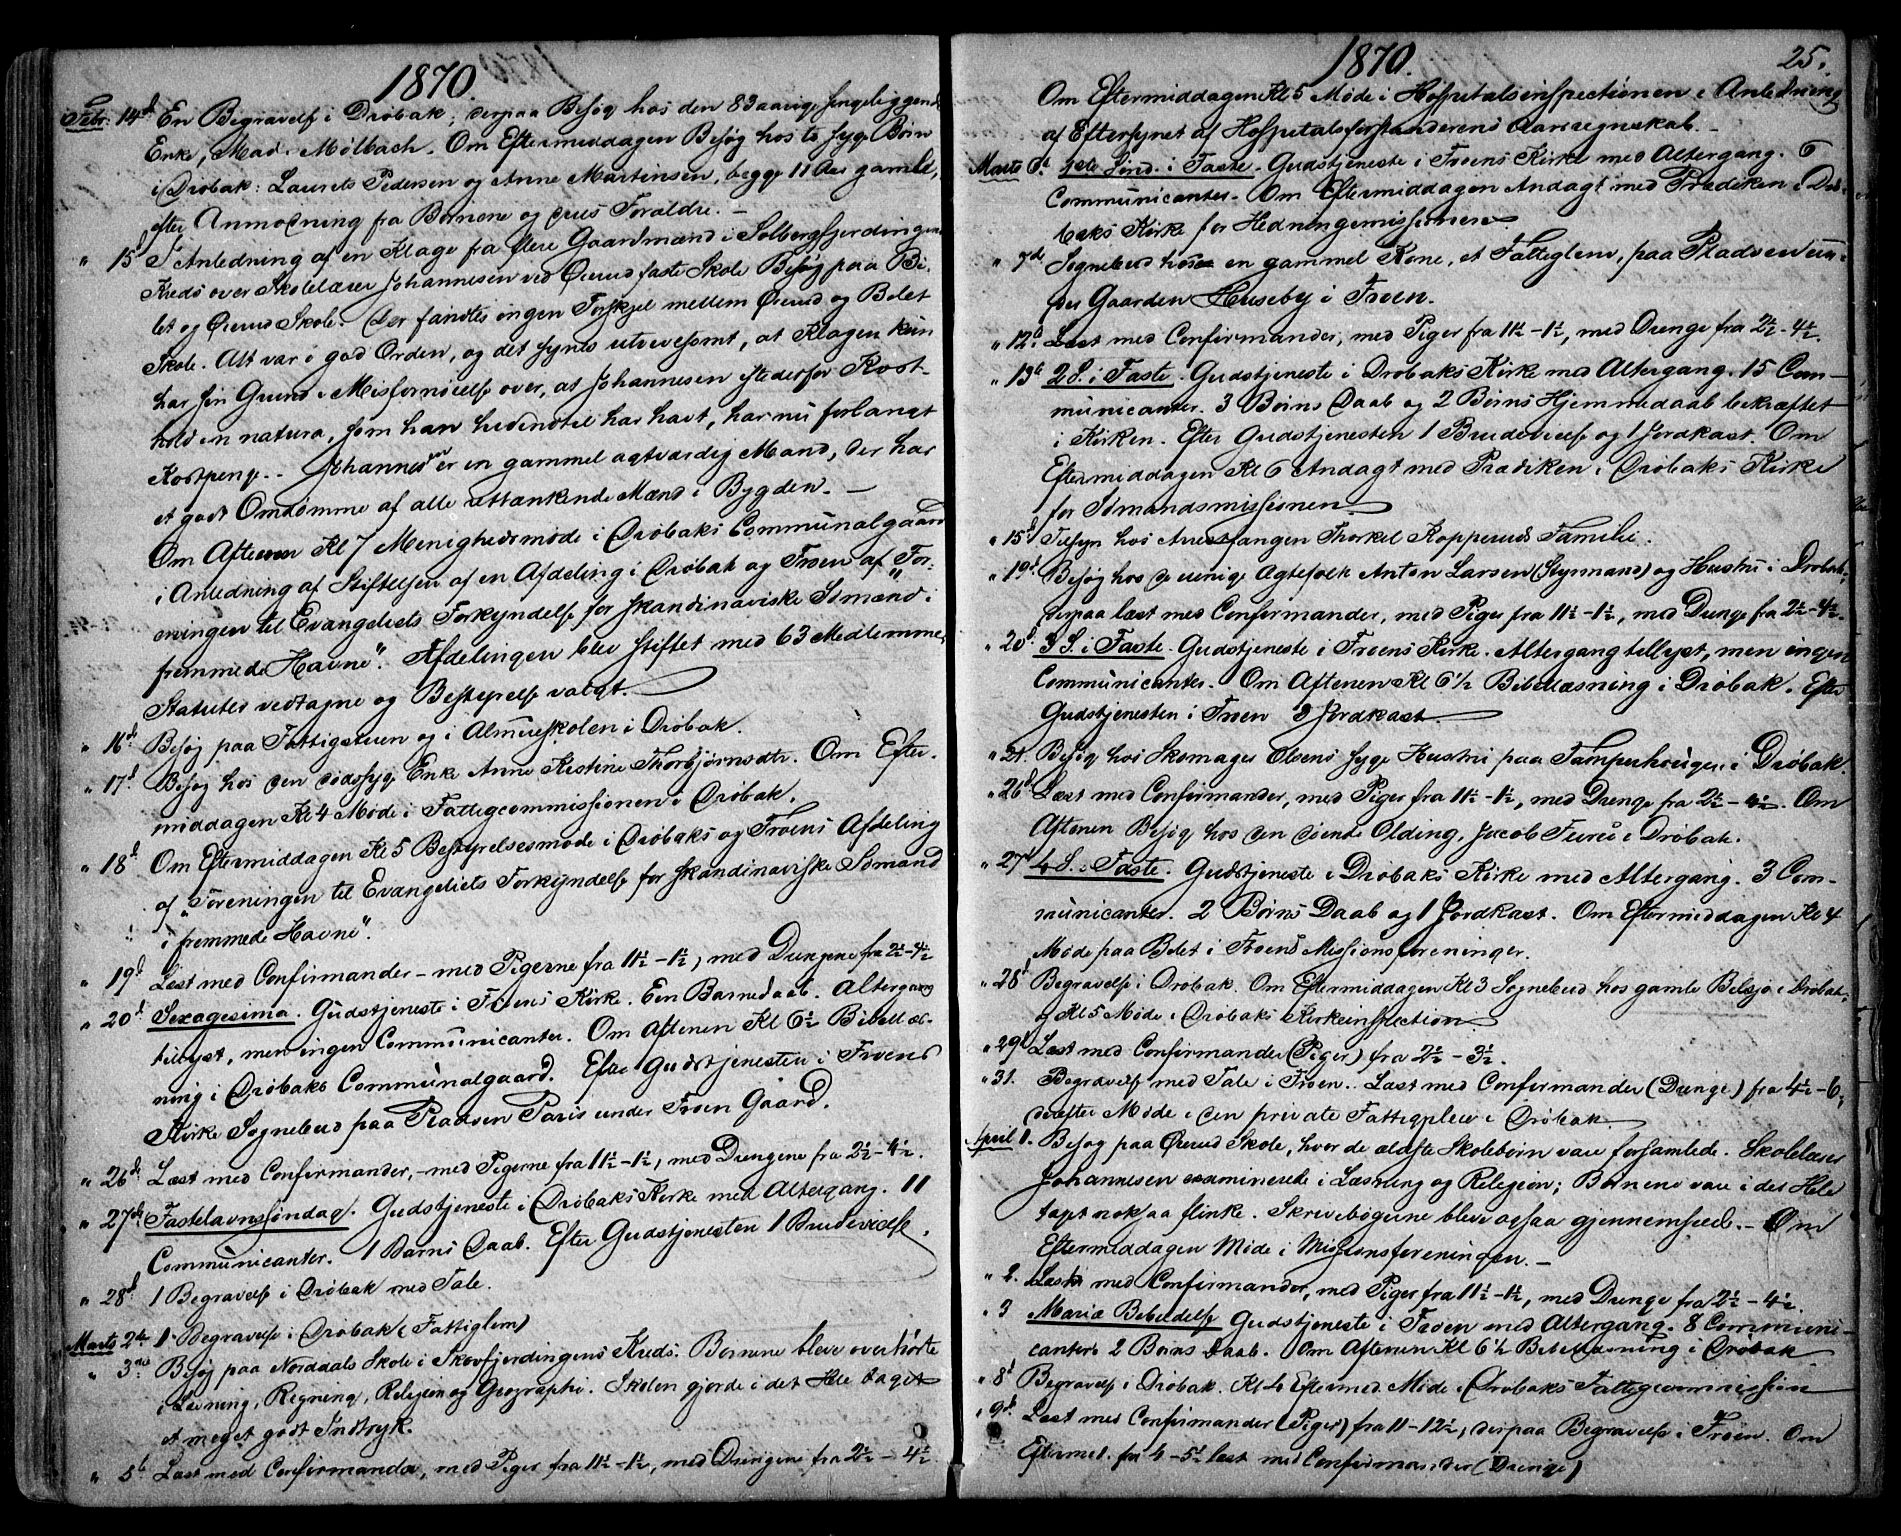 1870
Febr. 14d En Begravelse i Drøbak; derpaa Besøg hos den 83aarige sengeliggende
Enke, Mad. Mølbach. Om Eftermiddagen Besøg hos to syge Børn
i Drøbak: Laurets Pedersen og Anne Martinsen, begge 11 Aar gamle,
efter Anmodning fra Børnene og deres Forældre. –
" 15d I Anledning af en Klage fra flere Gaardmænd i Solbergfjerdingens
Kreds over Skolelærer Johannesen ved Øerud faste Skole Besøg paa Be-
let og Øerud Skole. Der fandtes ingen Forskjel mellem Øerud og Belet
Skole. Alt var i god Orden, og det synes utvivlsomt, at Klagen kun
har sin Grund i Misfornøielse over, at Johannesen istedetfor Kost-
hold in natura, som han hidindtil har havt, har nu forlangt
Kostpenge. – Johannesen er en gammel agtværdig Mand, der har
et godt Omdømme af alle rettænkende Mænd i Bygden. –
Om Aftenen Kl 7 Menighedsmøde i Drøbaks Communalgaard
i Anledning af Stiftelsen af en Afdeling i Drøbak og Froen af "For-
eningen til Evangeliets Forkyndelse for skandinaviske Sømænd i
fremmede Havne". Afdelingen blev stiftet med 63 Medlemmer,
Statuter vedtagne og Bestyrelse valgt.
" 16d Besøg paa Fattigstuen og i Almueskolen i Drøbak.
" 17d Besøg hos den dødssyge Enke Anne Kirstine Thorbjørnsdtr. Om Efter-
middagen Kl 4 Møde i Fattigcommissionen i Drøbak.
" 18d Om Eftermiddagen Kl 5 Bestyrelsesmøde i Drøbaks og Froens Afdeling
af "Foreningen til Evangeliets Forkyndelse for skandinaviske Sømænd
i fremmede Havne".
" 19d Læst med Confirmander – med Pigerne fra 11½–1½, med Drengene fra 2½–4½
" 20d Sexagesima. Gudstjeneste i Froens Kirke. Een Barnedaab. Altergang
tillyst, men ingen Communicanter. Om Aftenen Kl 6½ Bibellæs-
ning i Drøbaks Communalgaard. Efter Gudstjenesten i Froens
Kirke Sognebud paa Pladsen Paris under Froen Gaard.
" 26d Læst med Confirmander, – med Pigerne fra 11½–1½, med Drengene fra 2½–4½.
" 27de Fastelavnssøndag. Gudstjeneste i Drøbaks Kirke med Altergang. 11
Communicanter. 1 Barns Daab. Efter Gudstjenesten 1 Brudevielse.
" 28d 1 Begravelse i Drøbak med Tale.
Marts 2de 1 Begravelse i Drøbak (Fattiglem)
" 3die Besøg paa Norddals Skole i Skovfjerdingens Kreds. Børnene bleve overhørte
i Læsning, Regning, Religion og Geographi. Skolen gjorde i det Hele taget
et meget godt Indtryk.
" 5t Læst med Confirmander, med Piger fra 11½–1½, med Drengene fra 2½–4½.
1870.
25.
Om Eftermiddagen Kl 5 Møde i Hospitalsinspectionen i Anledning
af Eftersynet af Hospitalsforstanderens Aarsregnskab. –
Marts 6t 1ste Sønd. i Faste. Gudstjeneste i Froens Kirke med Altergang. 6
Communicanter. Om Eftermiddagen Andagt med Prædiken i Drø-
baks Kirke for Hedningemissionen.
" 7de Sognebud hos en gammel Kone, et Fattiglem, paa Pladsen un-
der Gaarden Huseby i Froen.
" 12d Læst med Confirmander, med Piger fra 11½–1½, med Drenge fra 2½–4½.
" 13d 2 S. i Faste. Gudstjeneste i Drøbaks Kirke med Altergang. 15 Com-
municanter. 3 Børns Daab og 2 Børns Hjemmedaab bekræftet
i Kirken. Efter Gudstjenesten 1 Brudevielse og 1 Jordkast. Om
Eftermiddagen Kl 6 Andagt med Prædiken i Drøbaks Kirke
for Sømandsmissionen.
" 15d Tilsyn hos Arrestfangen Thorkel Kopperuds Familie.
" 19d Besøg hos de uenige Ægtefolk Anton Larsen (Styrmand) og Hustru i Drøbak,
derpaa læst med Confirmander, med Piger fra 11½–1½, med Drenge fra 2½–4½.
" 20d 3 S. i Faste. Gudstjeneste i Froens Kirke. Altergang tillyst, men ingen
Communicanter. Om Aftenen Kl 6½ Bibellæsning i Drøbak. Efter
Gudstjenesten i Froen 3 Jordkast.
" 21. Besøg hos Skomager Olsens syge Hustru paa Tamperhougen i Drøbak.
" 26d Læst med Confirmander, med Piger fra 11½–1½, med Drenge fra 2½–4½. Om
Aftenen Besøg hos den døende Olding, Jacob Furu i Drøbak.
" 27d 4 S. i Faste. Gudstjeneste i Drøbaks Kirke med Altergang. 3 Com-
municanter. 2 Børns Daab og 1 Jordkast. Om Eftermiddagen Kl 4
Møde paa Belet i Froens Missionsforeninger.
" 28d Begravelse i Drøbak. Om Eftermiddagen Kl 3 Sognebud hos gamle Belsjø i Drøbak,
og Kl 5 Møde i Drøbaks Kirkeinspection.
" 29d Læst med Confirmander (Piger) fra 2½–3½.
" 31. Begravelse med Tale i Froen. Læst med Confirmander (Drenge) fra 4½–6,
derefter Møde i den private Fattigpleie i Drøbak.
April 1. Besøg paa Øerud Skole, hvor de ældste Skolebørn vare forsamlede. Skolelærer
Johannesen examinerede i Læsning og Religion; Børnene vare i det Hele
taget nok saa flinke. Skrivebøgerne bleve ogsaa gjennemseede. – Om
Eftermiddagen Møde i Missionsforeningen. –
" 2. Læst med Confirmander, med Piger fra 11½–1½, med Drenge fra 2½–4½.
" 3 Mariæ Bebudelse Gudstjeneste i Froen med Altergang. 8 Communi-
canter. 2 Børns Daab. Om Aftenen Kl 6½ Bibellæsning i Drøbak.
" 8d Begravelse i Drøbak. Kl 4 Eftermed. Møde i Drøbaks Fattigcommission
" 9d. Læst med Confirmander (Piger) fra 11–12½, derpaa Begravelse i Froen. Om
Eftermed. fra 4–5½ læst med Confirmander (Drenge)